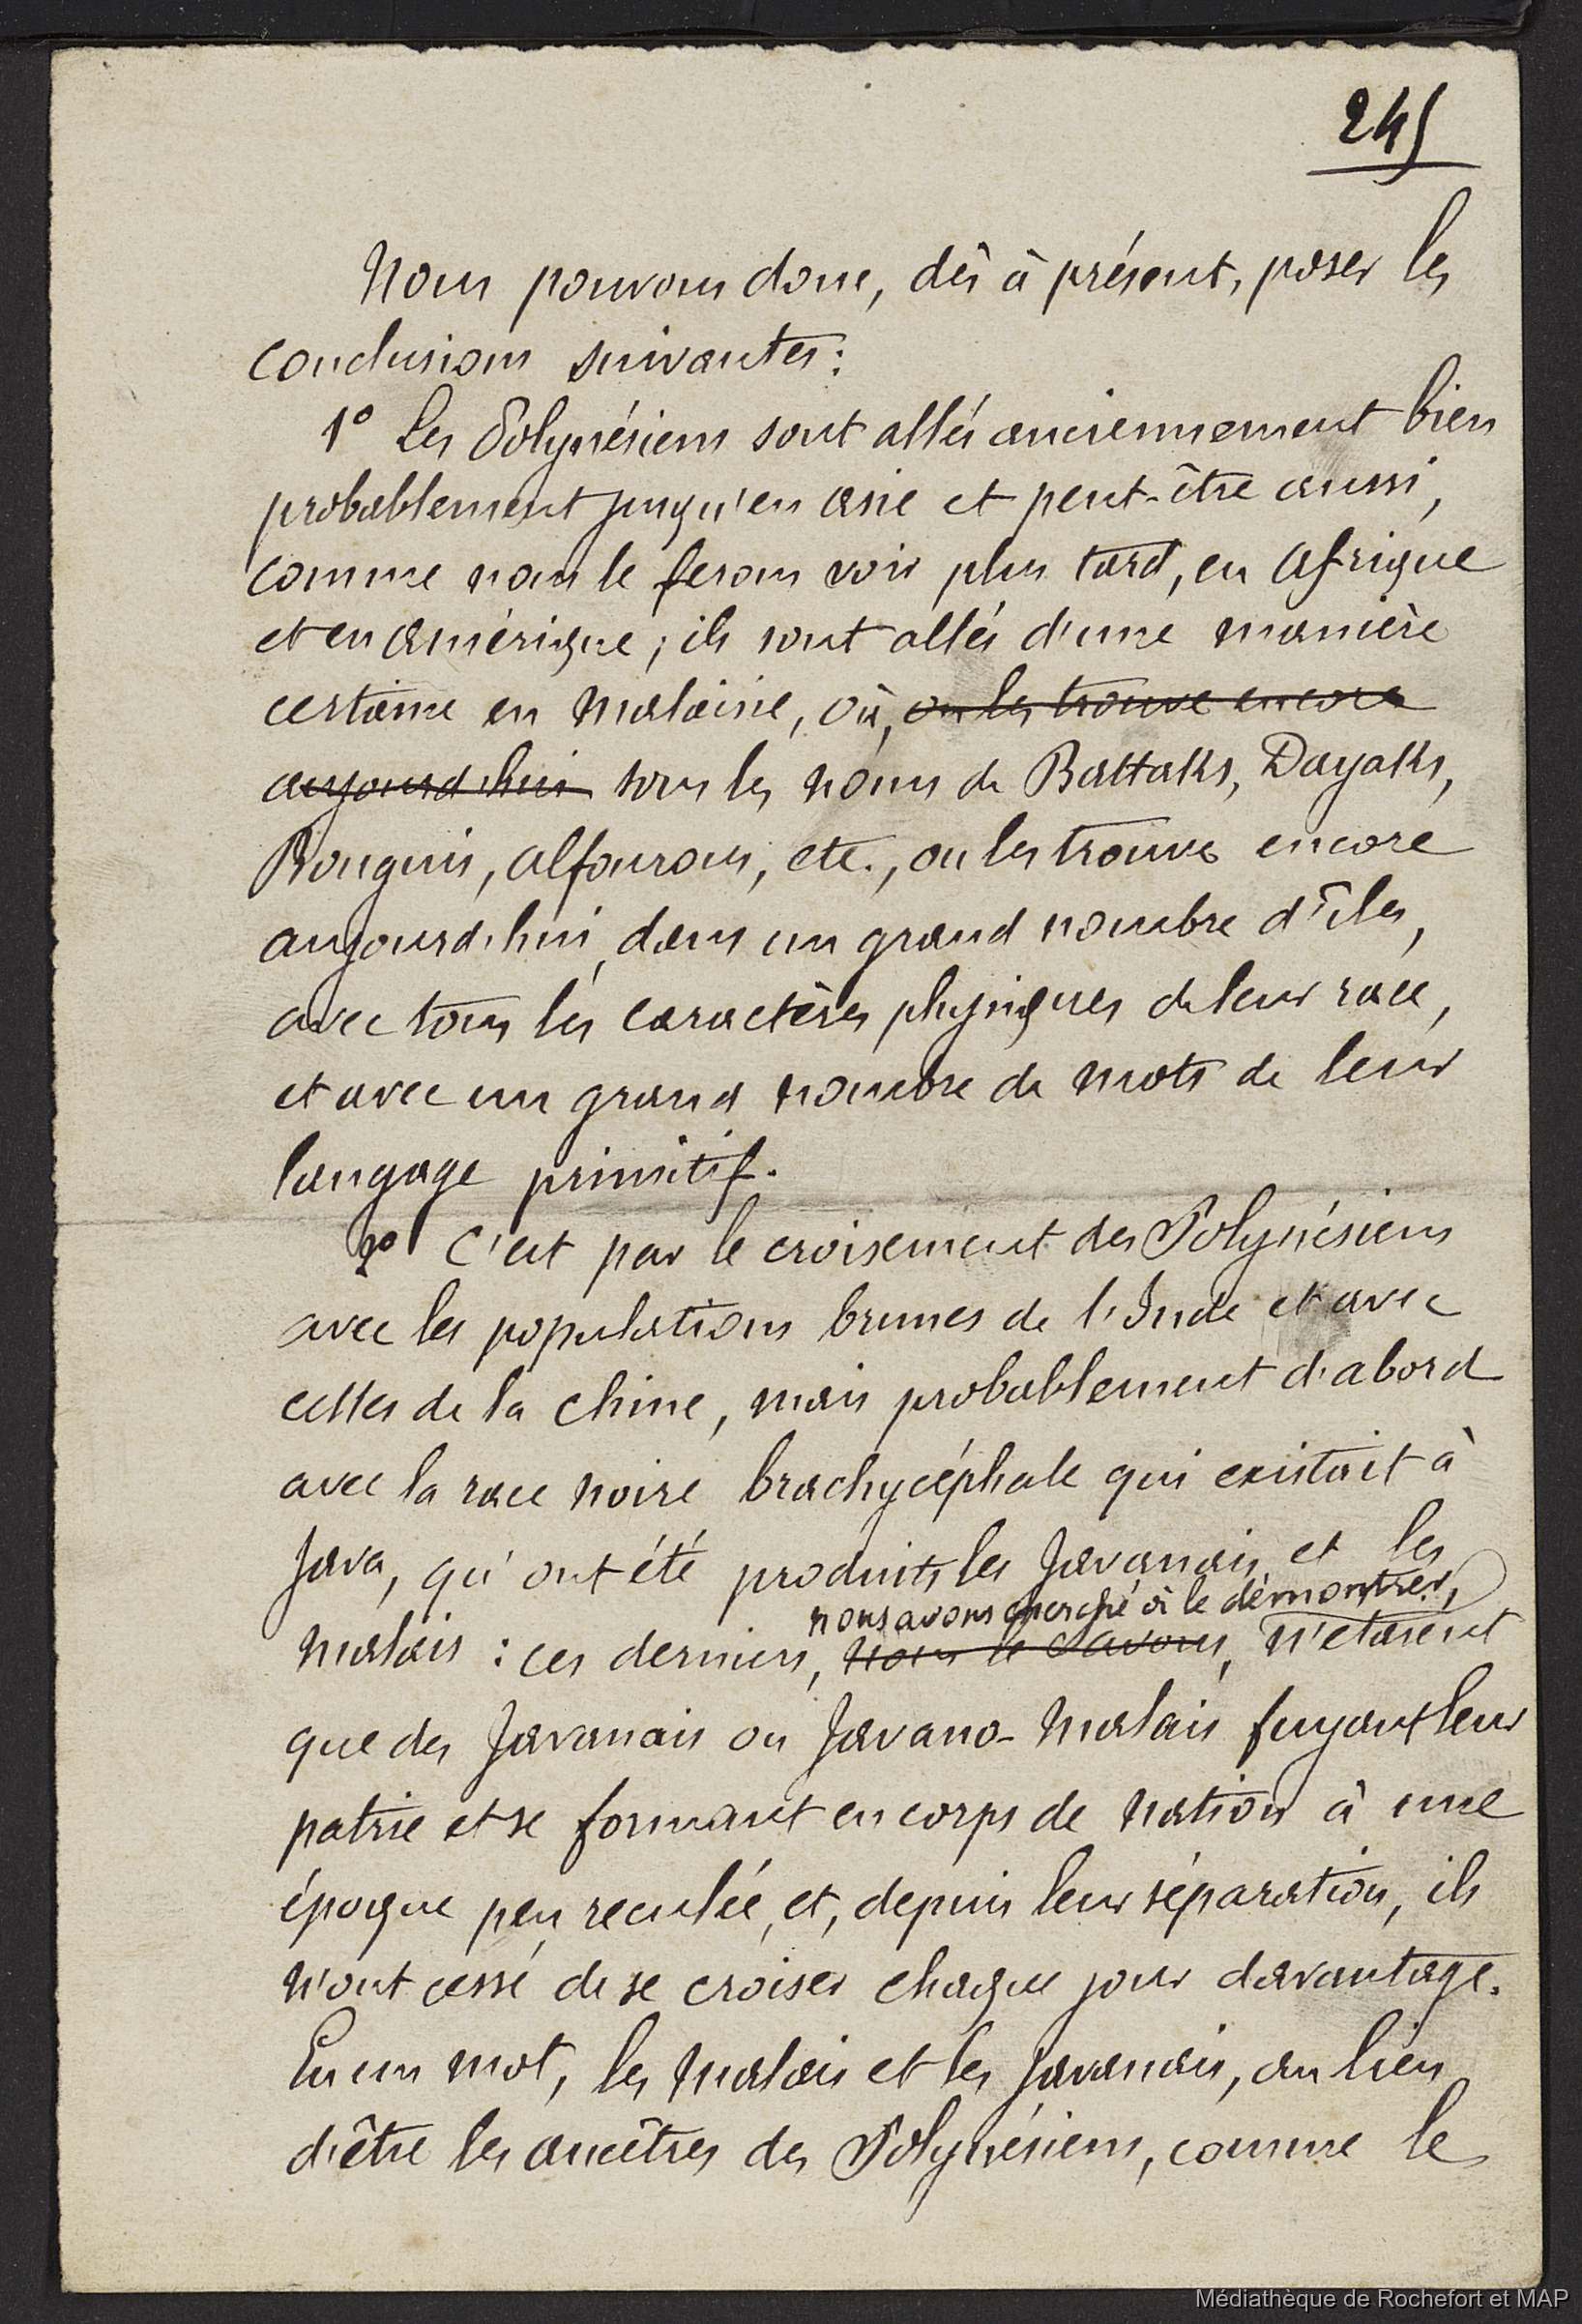 245
Nous pouvons donc, dès à présent, poser les
conclusions suivantes :
1° Les Polynésiens sont allés anciennement bien
probablement jusqu'en asie et peut-être aussi,
comme nous le ferons voir plus tard, en afrique
et en amérique ; ils sont allés d'une manière
certaine en Malaisie, où, on les trouve encore
aujourd'hui sous les noms de Battaks, Dayaks,
Bouguis, alfourous, etc., on les trouve encore
aujourd'hui, dans un grand nombre d'îles,
avec tous les caractères physiques de leur race,
et avec un grand nombre de mots de leur
langage primitif.
2° C'est par le croisement des Polynésiens
avec les populations brunes de l'Inde et avec
celles de la Chine, mais probablement d'abord
avec la race noire brachycéphale qui existait à
Java, qu'ont été produits les Javanais et les
nous avons cherché à le démontrer,
Malais : ces derniers, nous le savons, n'étaient
que des Javanais ou Javano-Malais fuyant leur
patrie et se formant en corps de nation à une
époque peu reculée, et, depuis leur séparation, ils
n'ont cessé de se croiser chaque jour davantage.
En un mot, les Malais et les Javanais, au lieu
d'être les ancêtres des Polynésiens, comme le
Médiathèque de Rochefort et MAP